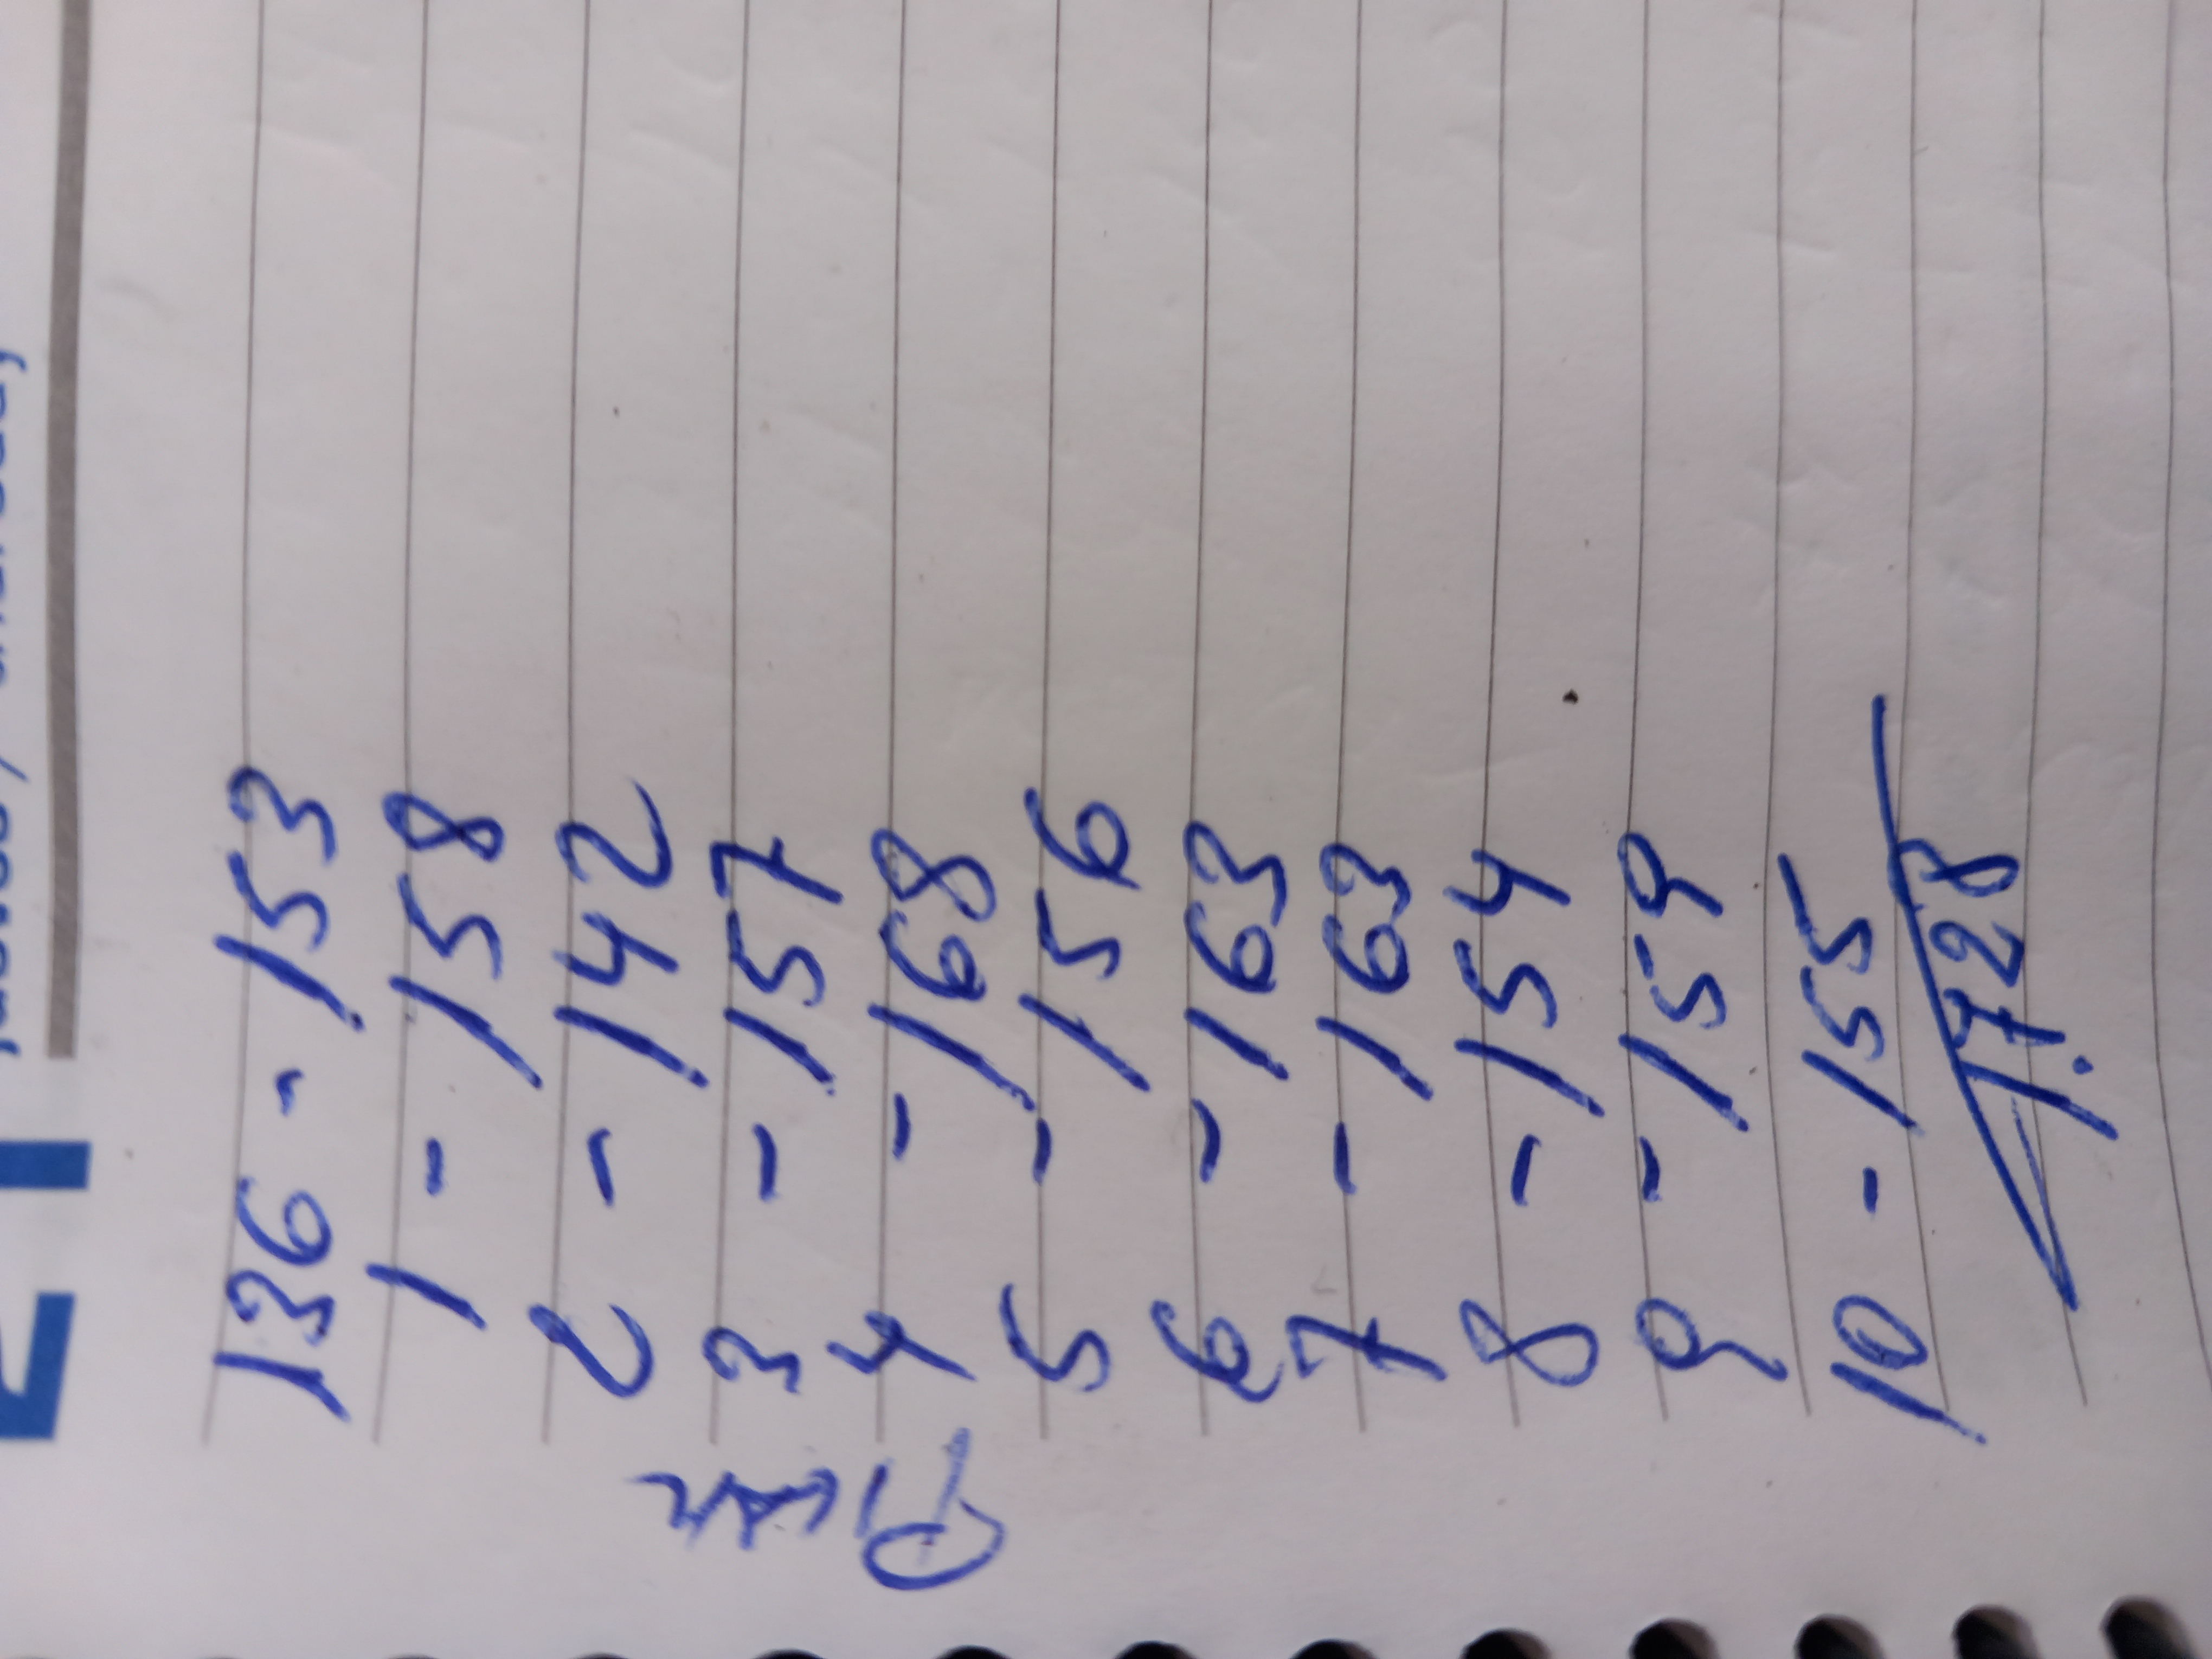 136 - 153
1 - 158
2 - 142
3 - 157
4 - 168
5 - 156
6 - 163
7 - 163
8 - 154
9 - 159
10 - 155
1.728